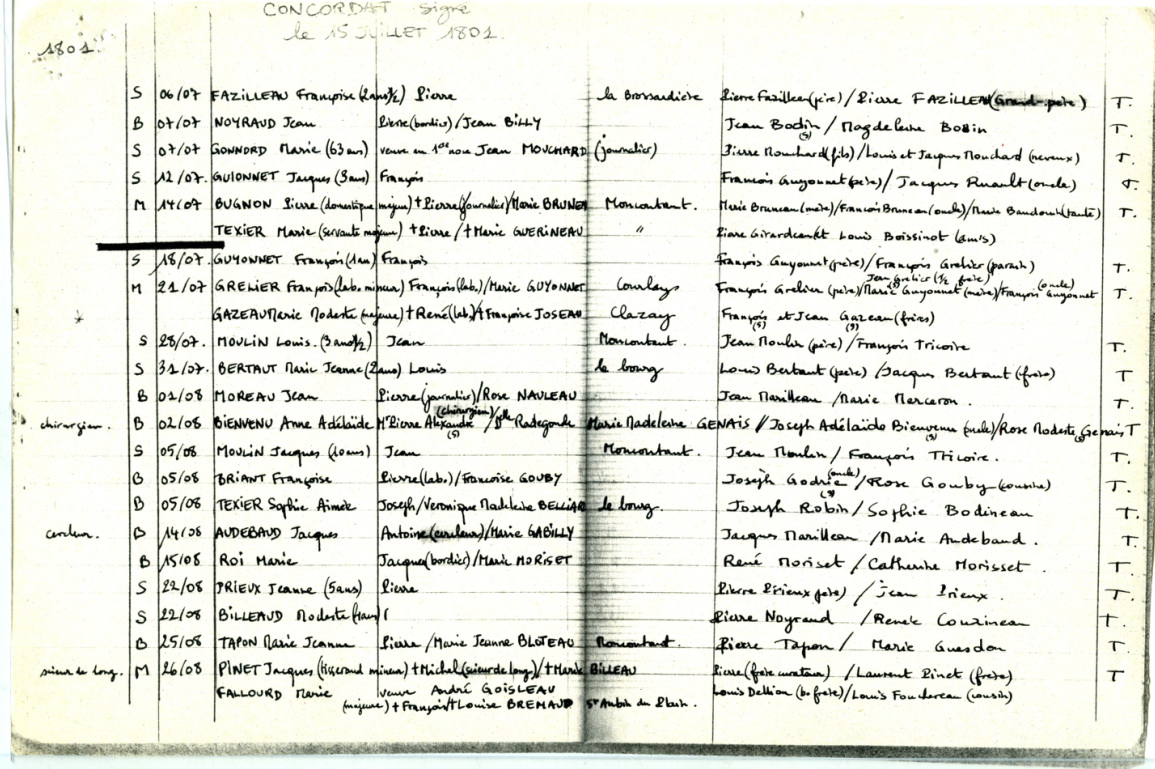 CONCORDAT signé
le 15 JUILLET 1801.
1801.
S 06/07 FAZILLEAU Françoise (2ans1/2) Pierre la Brossardière Pierre Fazilleau (père) / Pierre FAZILLEAU (Grand-père) T.
B 07/07 NOYRAUD Jean Pierre (bordier) / Jean BILLY Jean Bodin (S) / Magdeleine Bodin T.
S 07/07 GONNORD Marie (63 ans) veuve en 1ere noce Jean MOUCHARD (journalier) Pierre Mouchard (fils) / Louis et Jacques Mouchard (neveux) T.
S 12/07. GUIONNET Jacques (3ans) François François Guyonnet (père) / Jacques Ruault (oncle) T.
M 14/07 BUGNON Pierre (domestique majeur) + Pierre (journalier) / Marie BRUNEAU Moncoutant. Marie Bruneau (mère) / François Bruneau (oncle) / Marie Baudouin (tante) T.
TEXIER Marie (servante majeure) + Pierre / + Marie GUERINEAU " Pierre Girardeau et Louis Boissinot (amis)
S 18/07. GUYONNET François (1an) François François Guyonnet (père) / François Grelier (parain) T.
M 21/07 GRELIER François (labo. mineur) François (lab.) / Marie GUYONNET Courlays François Grelier (père) / Jean Grelier (1/2 frère) (S) Marie Guyonnet (mère) / François Guyonnet (oncle) T.
GAZEAU Marie Modeste (majeure) + René (lab.) / + Françoise JOSEAU Clazay François (S) et Jean Gazeau (S) (frères)
S 28/07. MOULIN Louis. (3 ans1/2) Jean Moncoutant. Jean Moulin (père) / François Tricoire T.
S 31/07. BERTAUT Marie Jeanne (2ans) Louis le bourg Louis Bertaut (père) / Jacques Bertaut (frère) T
B 01/08 MOREAU Jean Pierre (journalier) / Rose NAULEAU Jean Marilleau / Marie Merceron. T.
chirurgien. B 02/08 BIENVENU Anne Adélaïde Mr Pierre Alexandre (chirurgien) (S) / Dlle Radegonde Marie Madeleine GENAIS // Joseph Adélaïde Bienvenu (S) (oncle) / Rose Modeste (S) Genais T
S 05/08 MOULIN Jacques (10ans) Jean Moncoutant. Jean Moulin / François Tricoire. T.
B 05/08 BRIANT Françoise Pierre (lab.) / Francoise GOUBY Joseph Godrie (oncle) (S) / Rose Gouby (cousine) T.
B 05/08 TEXIER Sophie Aimée Joseph / Veronique Madeleine BELLIARD le bourg. Joseph Robin / Sophie Bodineau T.
cercleur. B 14/08 AUDEBAUD Jacques Antoine (cercleur) / Marie GABILLY Jacques Marilleau / Marie Audebaud. T.
B 15/08 ROI Marie Jacques (bordier) / Marie MORISET René Moriset / Catherine Morisset. T.
S 22/08 PRIEUX Jeanne (5ans) Pierre Pierre Prieux (père) / Jean Prieux. T.
S 22/08 BILLEAUD Modeste Pierre Noyraud / Renée Couzineau T.
B 25/08 TAPON Marie Jeanne Pierre / Marie Jeanne BLOTEAU Moncoutant. Pierre Tapon / Marie Guesdon T.
sieur de long. M 26/08 PINET Jacques (tisserand mineur) + Michel (sieur de long) / + Marie BILLEAU Pierre (frère curateur) / Laurent Pinet (frère) T
FALLOURD Marie veuve André GOISLEAU Louis Dellion (b. frère) / Louis Fouchereau (cousin)
(majeure) + François / + Louise BREMAUD St Aubin du Plain.